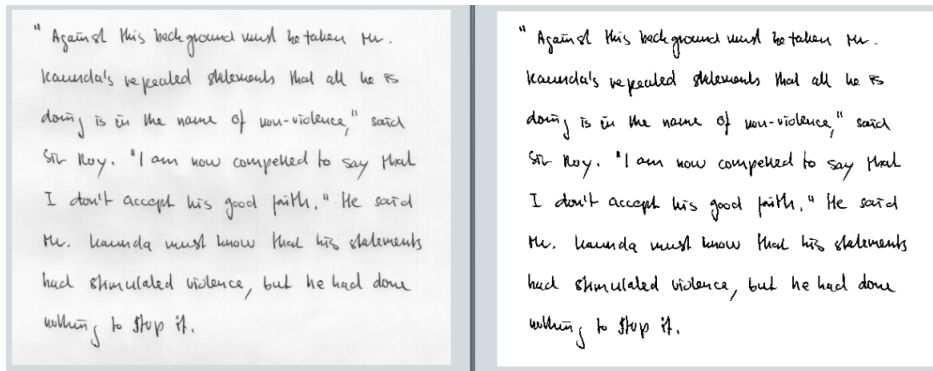 "Against this background must be taken Mr.
Kaunda's repeated statements that all he is
doing is in the name of non-violence," said
Sir Roy. "I am now compelled to say that
I don't accept his good faith." He said
Mr. Kaunda must know that his statements
had stimulated violence, but he had done
nothing to stop it.
"Against this background must be taken Mr.
Kaunda's repeated statements that all he is
doing is in the name of non-violence," said
Sir Roy. "I am now compelled to say that
I don't accept his good faith." He said
Mr. Kaunda must know that his statements
had stimulated violence, but he had done
nothing to stop it.